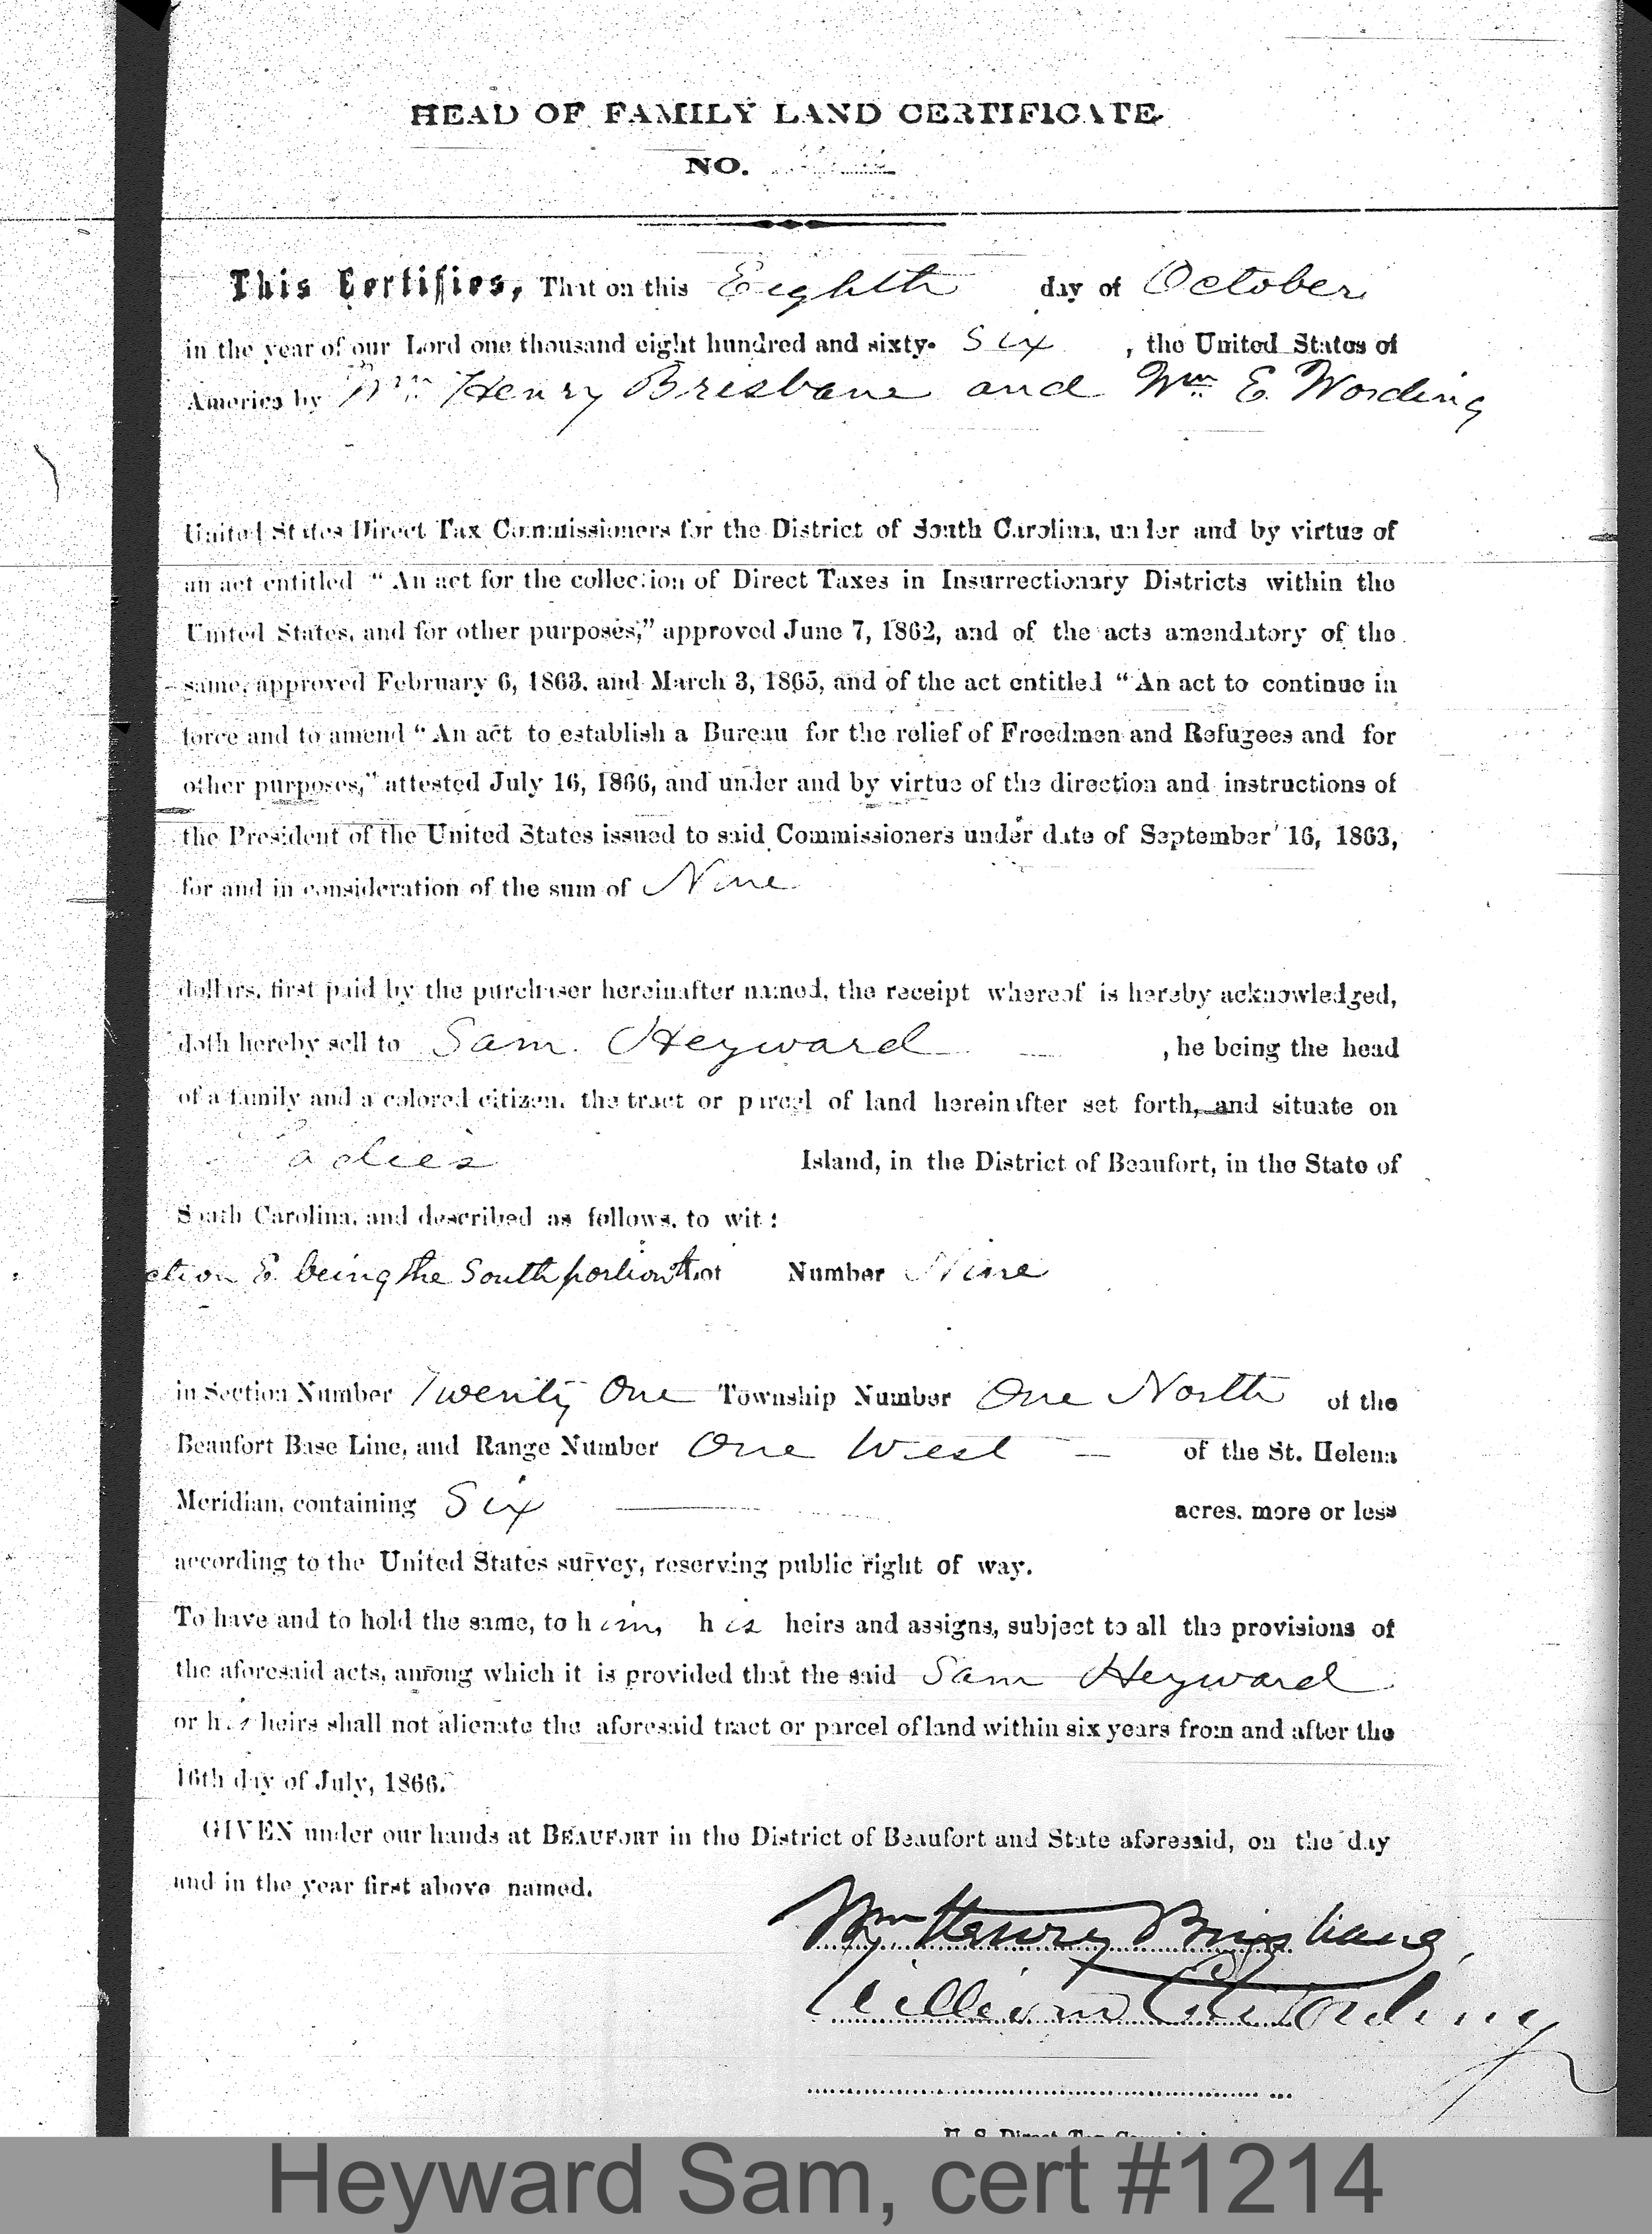 HEAD OF FAMILY LAND CERTIFICATE
NO.
This Certifies, That on this Eighth day of October
in the year of our Lord one thousand eight hundred and sixty- Six , the United States of
America by Wm Henry Brisbane and Wm E. Wording
United States Direct Tax Commissioners for the District of South Carolina, under and by virtue of
an act entitled "An act for the collection of Direct Taxes in Insurrectionary Districts within the
United States, and for other purposes," approved June 7, 1862, and of the acts amendatory of the
same, approved February 6, 1863, and March 3, 1865, and of the act entitled "An act to continue in
force and to amend "An act to establish a Bureau for the relief of Freedmen and Refugees and for
other purposes," attested July 16, 1866, and under and by virtue of the direction and instructions of
the President of the United States issued to said Commissioners under date of September 16, 1863,
for and in consideration of the sum of Nine
dollars, first paid by the purchaser hereinafter named, the receipt whereof is hereby acknowledged,
doth hereby sell to Sam. Heyward , he being the head
of a family and a colored citizen, the tract or parcel of land hereinafter set forth, and situate on
Ladies Island, in the District of Beaufort, in the State of
South Carolina, and described as follows, to wit:
ction E. being the South portion Lot Number Nine
in Section Number Twenty One Township Number One North of the
Beaufort Base Line, and Range Number One West — of the St. Helena
Meridian, containing Six acres, more or less
according to the United States survey, reserving public right of way.
To have and to hold the same, to him, his heirs and assigns, subject to all the provisions of
the aforesaid acts, among which it is provided that the said Sam Heyward
or his heirs shall not alienate the aforesaid tract or parcel of land within six years from and after the
16th day of July, 1866.
GIVEN under our hands at BEAUFORT in the District of Beaufort and State aforesaid, on the day
and in the year first above named.
Wm Henry Brisbane,
William E. Wording
U. S. Direct Tax
Heyward Sam, cert #1214